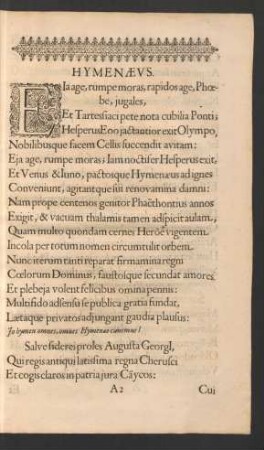 HYMENÆVS.
EIa age, rumpe moras, rapidos age, Phœ-
be, jugales,
Et Tartessiaci pete nota cubilia Ponti;
Hesperus Eoo jactantior exit Olympo,
Nobilibusque facem Cellis succendit avitam:
Eja age, rumpe moras; Iam noctifer Hesperus exit,
Et Venus & Iuno, pactosque Hymenæus ad ignes
Conveniunt, agitantque sui renovamina damni:
Nam prope centenos genitor Phaëthontius annos
Exigit, & vacuam thalamis tamen adspicit aulam,
Quam multo quondam cernes Heroë vigentem.
Incola per totum nomen circumtulit orbem.
Nunc iterum tanti reparat firmamina regni
Cœlorum Dominus, faustosque secundat amores
Et plebeja volent felicibus omina pennis:
Multifido adsensu se publica gratia fundat,
Lætaque privatos adjungant gaudia plausus:
Io hymen omnes, omnes Hymenæe canemus!
Salve siderei proles Augusta GeorgI,
Qui regis antiqui latissima regna Cherusci
Et cogis claros in patria jura Cäycos:
A 2
Cui